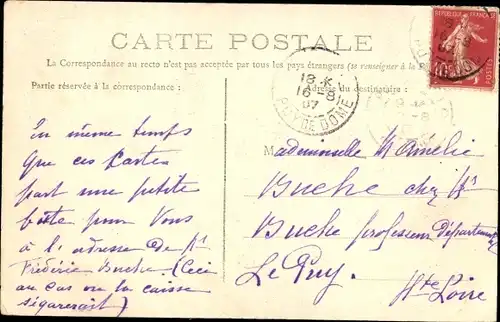 CARTE POSTALE
La Correspondance au recto n'est pas acceptée par tous les pays étrangers (se renseigner à la
Partie réservée à la correspondance :
Adresse du destinataire :
REPUBLIQUE FRANÇAISE
POSTES
18 K
16 - 8
07
PUY DE DOME
En même temps
que ces Cartes
part une petite
boîte pour Vous
à l'adresse de Mr
Frédéric Buche (Ceci
au cas où la caisse
s'égarerait)
Mademoiselle M Amélie
Buche chez Mr
Buche professeur départemental
Le Puy.
Hte Loire